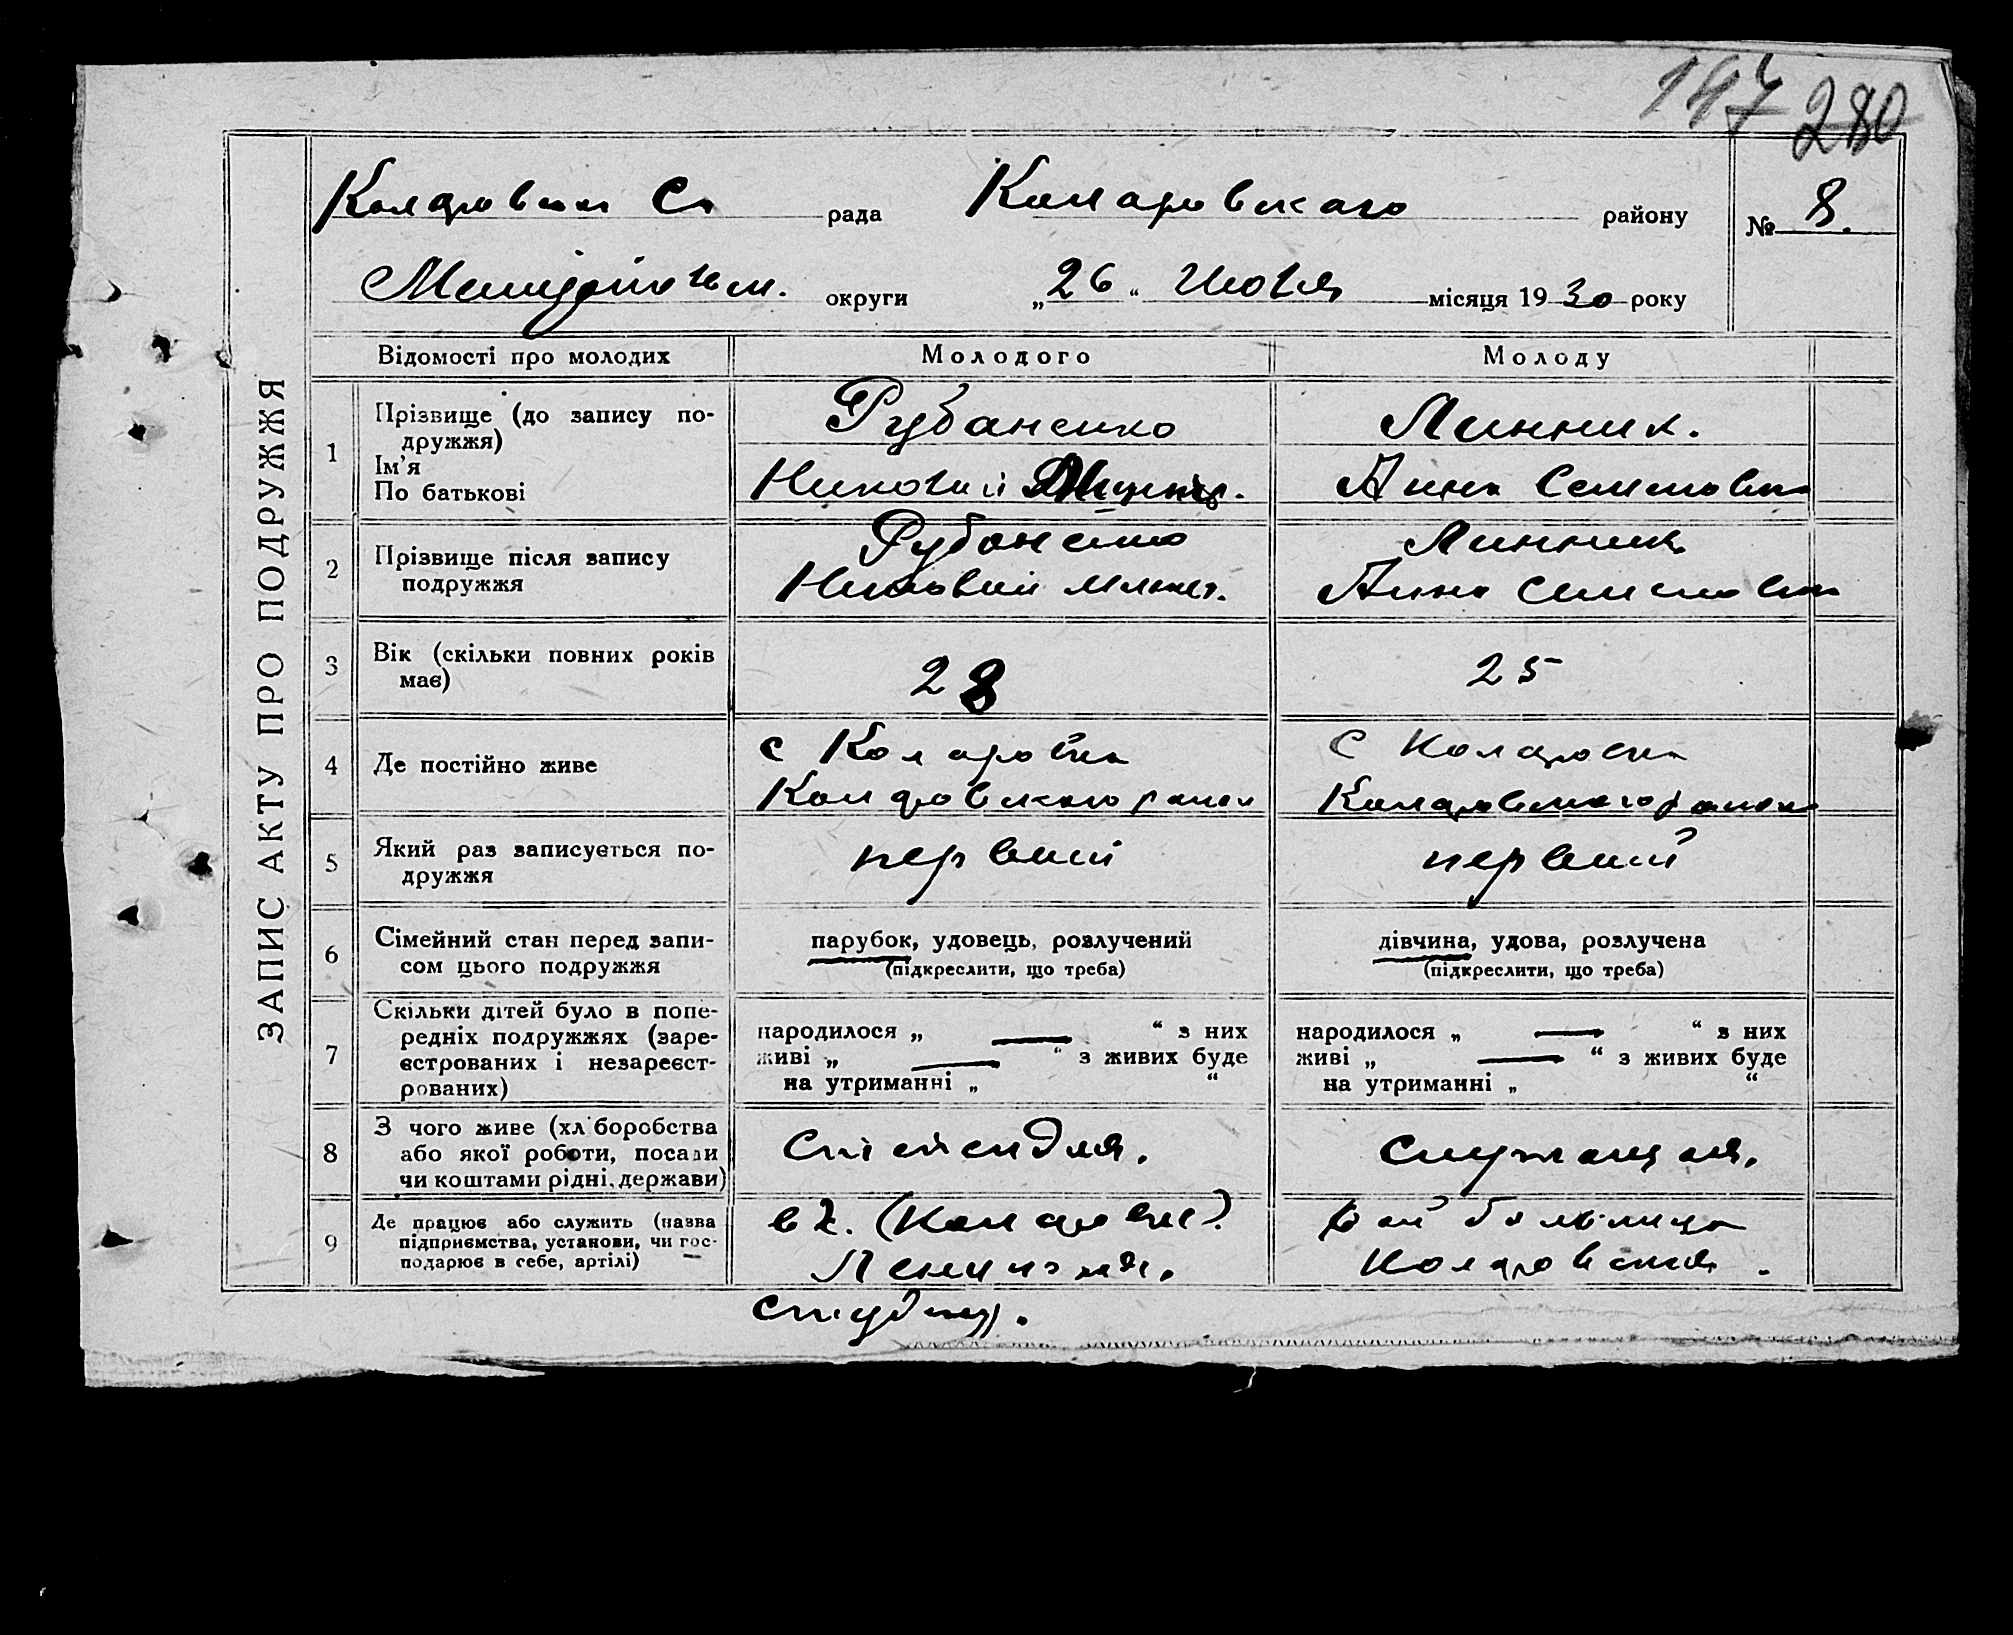 147 280
Коларовская Сл рада Коларовского району № 8.
Мелитопольск. округи „26“ Июля місяця 1930 року
ЗАПИС АКТУ ПРО ПОДРУЖЖЯ
Відомості про молодих Молодого Молоду
1 Прізвище (до запису по-
дружжя)
Ім’я
По батькові
Рубаненко
Николай
Линник.
Анна Семеновна
2 Прізвище після запису
подружжя
Рубаненко
Николай
Линник
Анна Семеновна
3 Вік (скільки повних років
має)
28
25
4 Де постійно живе
с Коларовка
Коларовского район
с Коларовка
Коларовского района
5 Який раз записується по-
дружжя
первый
первый
6 Сімейний стан перед запи-
сом цього подружжя
парубок, удовець, розлучений
(підкреслити, що треба)
дівчина, удова, розлучена
(підкреслити, що треба)
7 Скільки дітей було в попе-
редніх подружжях (заре-
єстрованих і незареєст-
рованих)
народилося „ — “ з них
живі „ — “ з живих буде
на утриманні „ “
народилося „ — “ з них
живі „ — “ з живих буде
на утриманні „ “
8 З чого живе (хліборобства
або якої роботи, посади
чи коштами рідні, держави)
Стипендия.
Служащая.
9 Де працює або служить (назва
підприємства, установи, чи гос-
подарює в себе, артілі)
Рай больница
Коларовская.